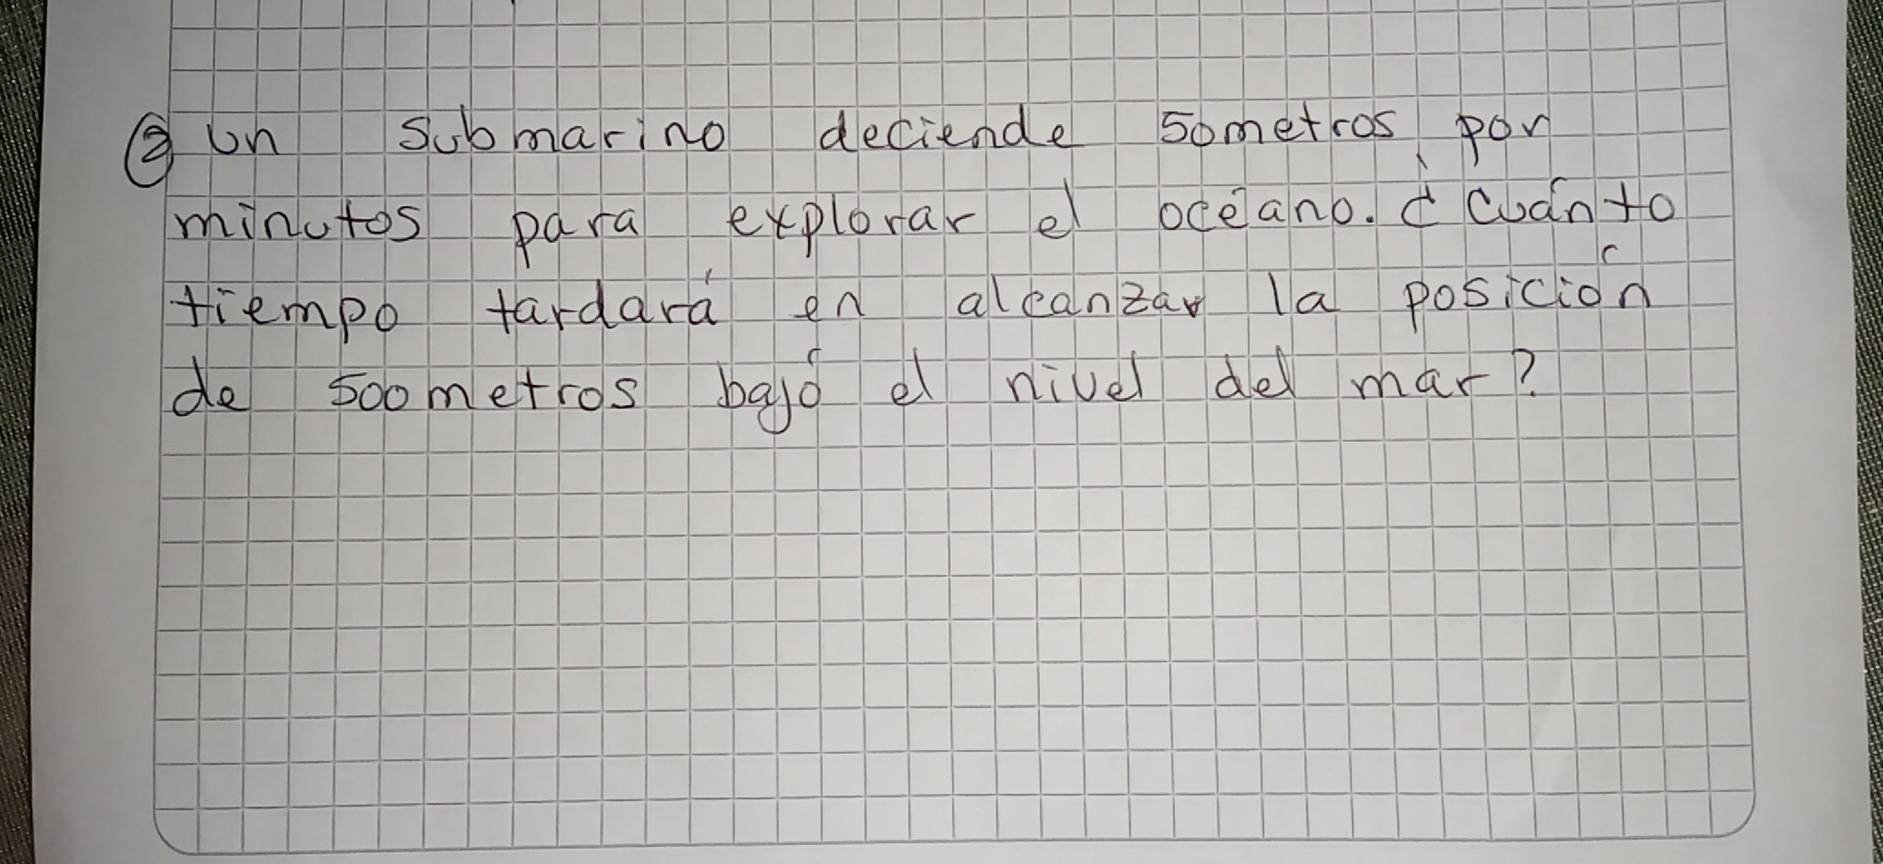 ② Un submarino deciende 50metros por
minutos para explorar el océano. ¿Cuánto
tiempo tardará en alcanzar la posición
de 500metros bajó el nivel del mar?